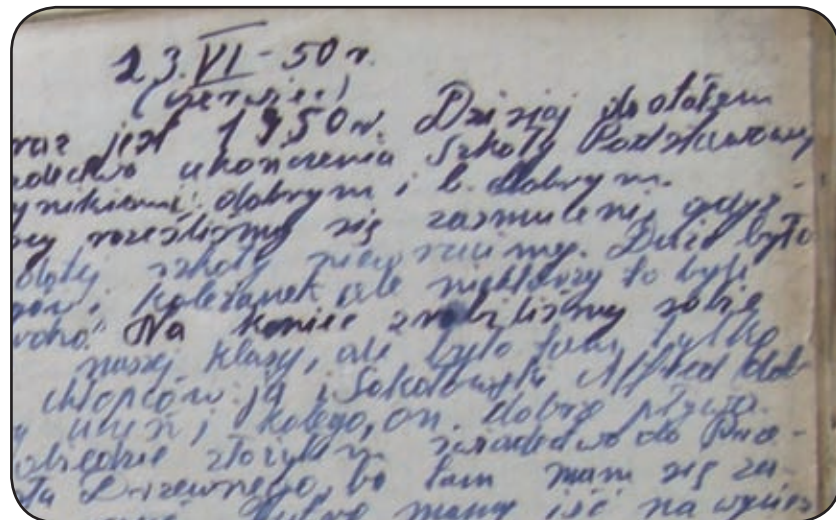 23.VI-50r.
(czerwiec)
raz jest 1950r. Dzisiaj dostałem
adectwo ukończenia Szkoły Podstawowej
ynikiem: dobrym i b. dobrym.
scy rozeszliśmy się zasmuceni, gdyż
do tej szkoły nie wrócimy. Dużo było
gów i koleżanek, ale niektórzy to byli
Na koniec zrobiliśmy sobie
naszej klasy, ale było tam tylko
chłopców ja i Sokołowski Alfred dob
uczeń i kolega, on dobrze pływa.
złożyłem świadectwo do
Drzewnego, bo tam mam się za-
Jutro mamy iść na wyciecz